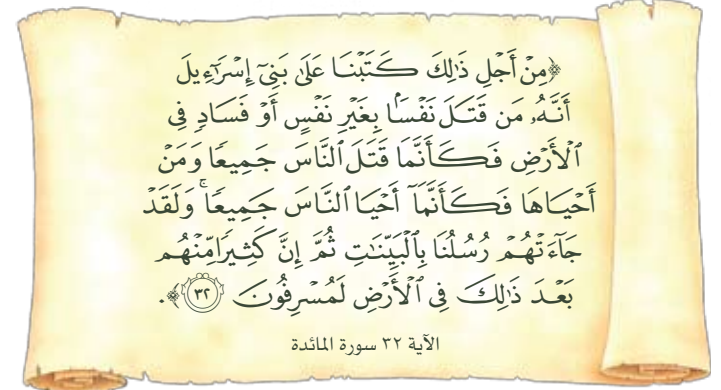 ﴿مِنْ أَجْلِ ذَٰلِكَ كَتَبْنَا عَلَىٰ بَنِيٓ إِسْرَٰٓءِيلَ
أَنَّهُۥ مَن قَتَلَ نَفْسًۢا بِغَيْرِ نَفْسٍ أَوْ فَسَادٍ فِى
ٱلْأَرْضِ فَكَأَنَّمَا قَتَلَ ٱلنَّاسَ جَمِيعًا وَمَنْ
أَحْيَاهَا فَكَأَنَّمَآ أَحْيَا ٱلنَّاسَ جَمِيعًاۚ وَلَقَدْ
جَآءَتْهُمْ رُسُلُنَا بِٱلْبَيِّنَٰتِ ثُمَّ إِنَّ كَثِيرًا مِّنْهُم
بَعْدَ ذَٰلِكَ فِى ٱلْأَرْضِ لَمُسْرِفُونَ ٣٢﴾.
الآية ٣٢ سورة المائدة